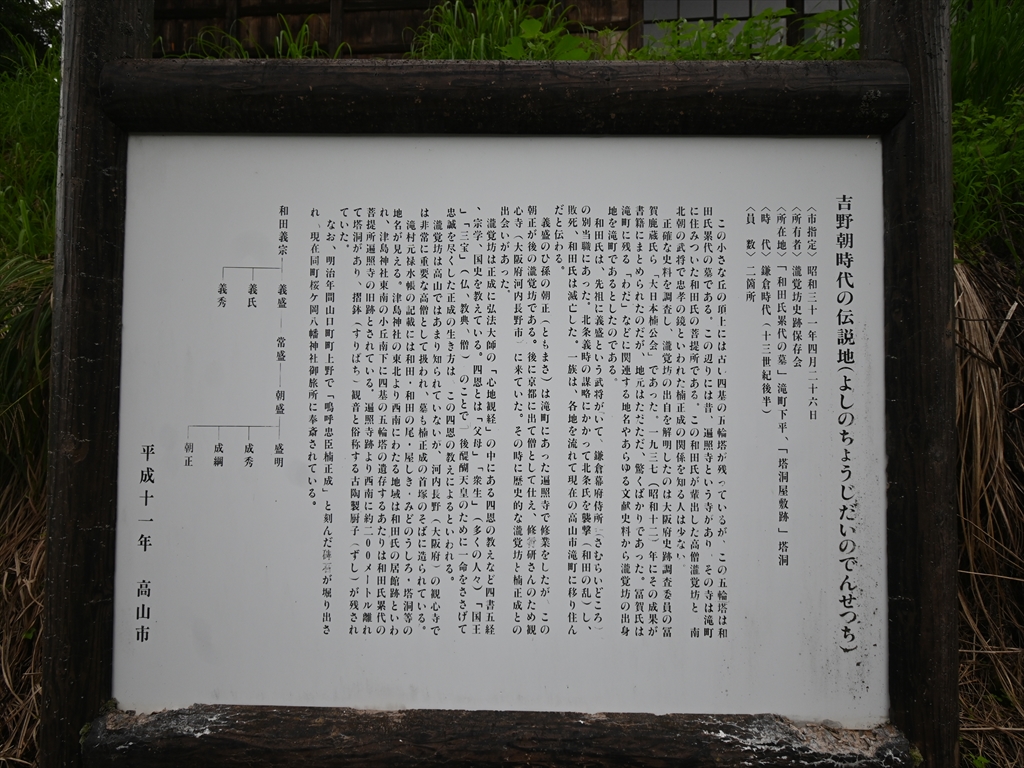 吉野朝時代の伝説地(よしのちょうじだいのでんせつち)
〈市指定〉昭和三十一年四月二十六日
〈所有者〉瀧覚坊史跡保存会
〈所在地〉「和田氏累代の墓」滝町下平、「塔洞屋敷跡」塔洞
〈時　代〉鎌倉時代(十三世紀後半)
〈員　数〉二箇所
この小さな丘の頂上には古い四基の五輪塔が残っているが、この五輪塔は和
田氏累代の墓である。この辺りには昔、遍照寺という寺があり、その寺は滝町
に住みついた和田氏の菩提所である。この和田氏が輩出した高僧瀧覚坊と、南
北朝の武将で忠孝の鏡といわれた楠正成の関係を知る人は少ない。
正確な史料を調査し、瀧覚坊の出自を解明したのは大阪府史跡調査委員の冨
賀鹿蔵氏ら「大日本楠公会」であった。一九三七(昭和十二)年にその成果が
書籍にまとめられたのだが、地元はただただ、驚くばかりであった。冨賀氏は
滝町に残る「わだ」などに関連する地名やあらゆる文献史料から瀧覚坊の出身
地を滝町であるとしたのである。
和田氏は、先祖に義盛という武将がいて、鎌倉幕府侍所(さむらいどころ)
の別当職にあった。北条義時の謀略にかかって北条氏を襲撃(和田の乱)し、
敗死、和田氏は滅亡した。一族は、各地を流れて現在の高山市滝町に移り住ん
だと伝わる。
義盛のひ孫の朝正(ともまさ)は滝町にあった遍照寺で修業をしたが、この
朝正が後の瀧覚坊である。後に京都に出て僧として仕え、修習研さんのため観
心寺(大阪府河内長野市)に来ていた。その時に歴史的な瀧覚坊と楠正成との
出会いがあった。
瀧覚坊は正成に弘法大師の「心地観経」の中にある四恩の教えなど四書五経
、宗学、国史を教えている。四恩とは「父母」「衆生」(多くの人々)「国王
」「三宝」(仏、教典、僧)のことで、後醍醐天皇のために一命をささげて
忠誠を尽くした正成の生き方は、この四恩の教えによるといわれる。
瀧覚坊は高山ではあまり知られていないが、河内長野(大阪府)の観心寺で
は非常に重要な高僧として扱われ、墓も楠正成の首塚のそばに造られている。
滝村元禄水帳の記載には和田・和田の尾・屋しき・みどのうしろ・塔洞等の
地名が見える。津島神社の東北より西南にわたる地域は和田氏の居館跡といわ
れ、津島神社東南の小丘南下に四基の五輪塔の遺存するあたりは和田氏累代の
菩提所遍照寺の旧跡とされている。遍照寺跡より西南に約二〇〇メートル離れ
て塔洞があり、摺鉢(すりばち)観音と俗称する古陶製厨子(ずし)が残され
ていた。
なお、明治年間山口町町上野で「嗚呼忠臣楠正成」と刻んだ が堀り出さ
れ、現在同町桜ケ岡八幡神社御旅所に奉斎されている。
和田義宗―義盛―常盛―朝盛―盛明
義氏
義秀
成秀
成綱
朝正
平成十一年　高山市